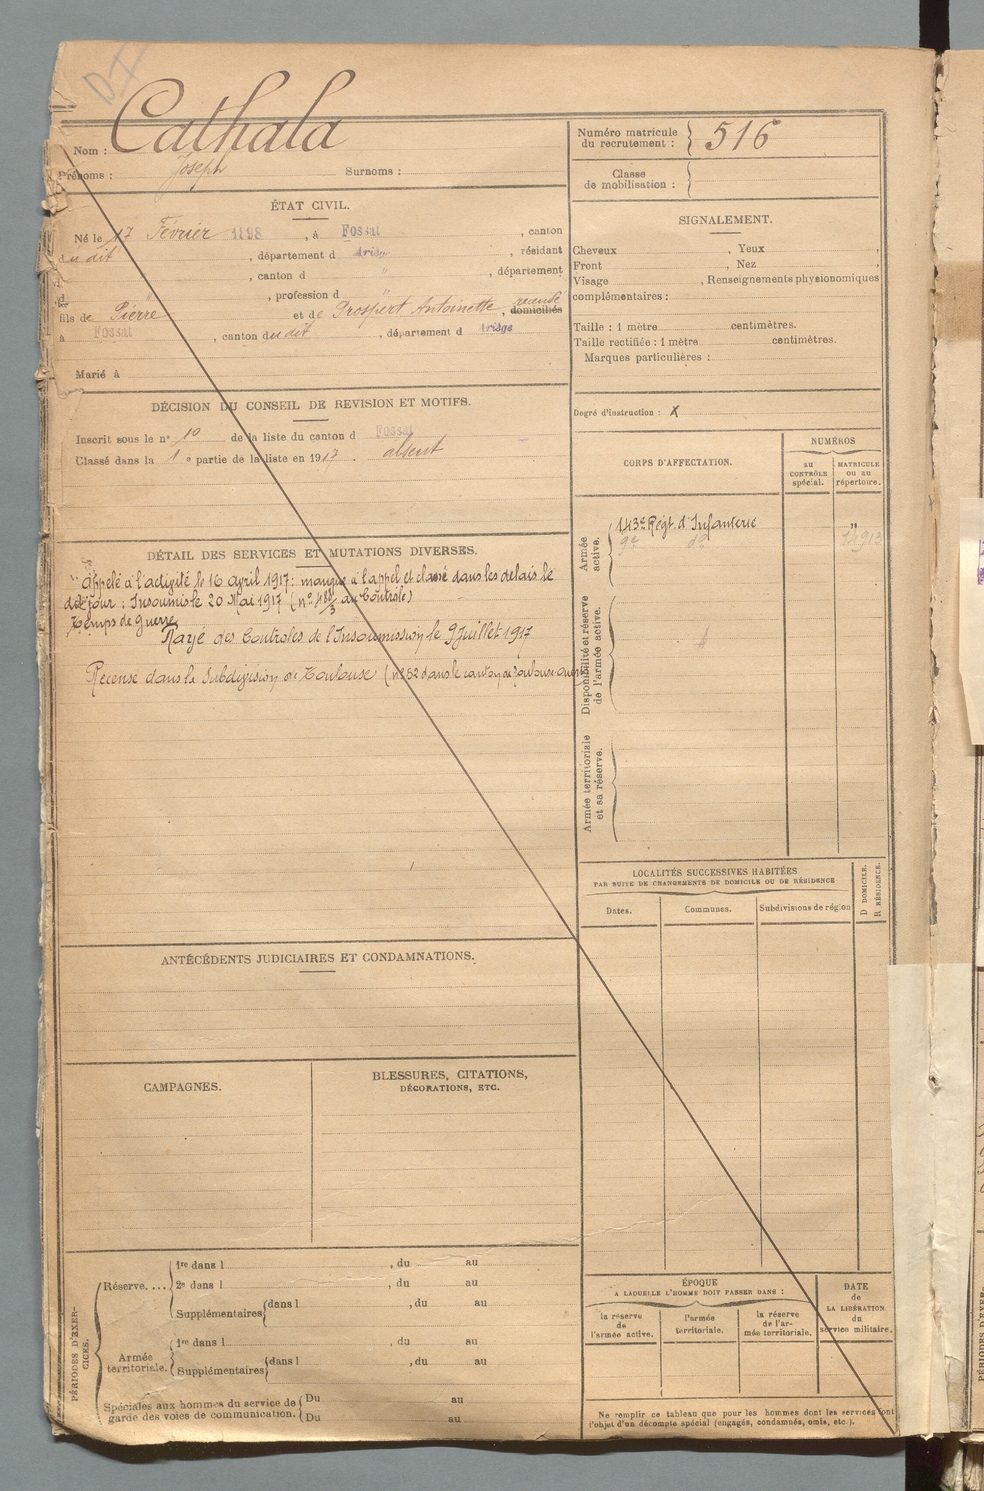 Cathala
Nom :
Prénoms : Joseph Surnoms :
Numéro matricule du recrutement : 516
Classe de mobilisation :
ÉTAT CIVIL.
Né le 17 Février 1898 , à Fossat , canton
du dit , département d Ariège , résidant
, canton d " , département
d , profession d
fils de Pierre et de Prospert Antoinette , domiciliés
à Fossat , canton du dit , département d Ariège
Marié à
SIGNALEMENT.
Cheveux , Yeux ,
Front , Nez ,
Visage , Renseignements physionomiques
complémentaires :
Taille : 1 mètre centimètres.
Taille rectifiée : 1 mètre centimètres.
Marques particulières :
Degré d'instruction : X
DÉCISION DU CONSEIL DE REVISION ET MOTIFS.
Inscrit sous le n° 10 de la liste du canton d Fossat
Classé dans la 1 e partie de la liste en 1917 . absent
DÉTAIL DES SERVICES ET MUTATIONS DIVERSES.
Appelé à l'activité le 16 avril 1917; manque à l'appel et classé dans les délais le
dit jour : Insoumis le 20 Mai 1917 ( du Contrôle)
Temps de guerre
Rayé des Contrôles de l'Insoumission le 9 Juillet 1917
Recensé dans la Subdivision de Toulouse (n° 52 dans le canton de Toulouse
CORPS D'AFFECTATION.
NUMÉROS
AU CONTRÔLE spécial.
MATRICULE ou au répertoire.
Armée active.
143e Régt. d'Infanterie "
9e do
Disponibilité et réserve de l'armée active.
Armée territoriale et sa réserve.
LOCALITÉS SUCCESSIVES HABITÉES
PAR SUITE DE CHANGEMENTS DE DOMICILE OU DE RÉSIDENCE
Dates.
Communes.
Subdivisions de région
D DOMICILE.
R RÉSIDENCE.
ANTÉCÉDENTS JUDICIAIRES ET CONDAMNATIONS.
CAMPAGNES.
BLESSURES, CITATIONS,
DÉCORATIONS, ETC.
PÉRIODES D'EXERCICES.
Réserve....
1re dans l , du au
2e dans l , du au
Supplémentaires dans l , du au
Armée territoriale.
1re dans l , du au
Supplémentaires dans l , du au
Spéciales aux hommes du service de garde des voies de communication.
Du au
Du au
ÉPOQUE
A LAQUELLE L'HOMME DOIT PASSER DANS :
la réserve de l'armée active.
l'armée territoriale.
la réserve de l'armée territoriale.
DATE de LA LIBÉRATION du service militaire.
Ne remplir ce tableau que pour les hommes dont les services font
l'objet d'un décompte spécial (engagés, condamnés, omis, etc.).